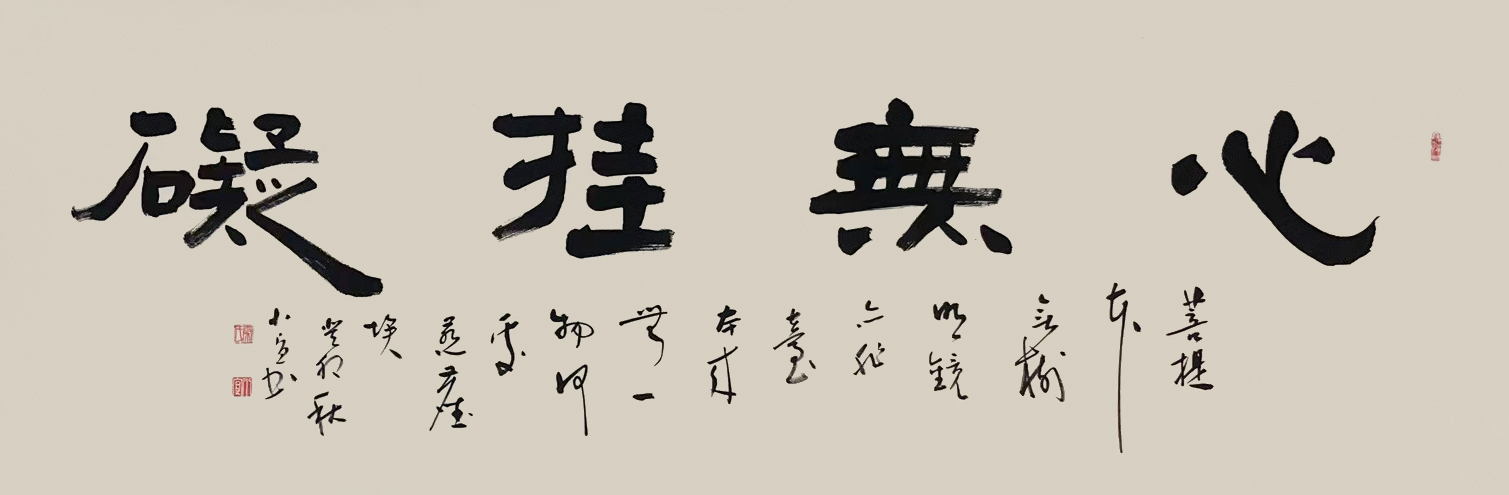 心無挂礙
菩提
本
无樹
明鏡
亦非
臺
本來
無一
物何
處
惹塵
埃
癸卯秋
小宣书